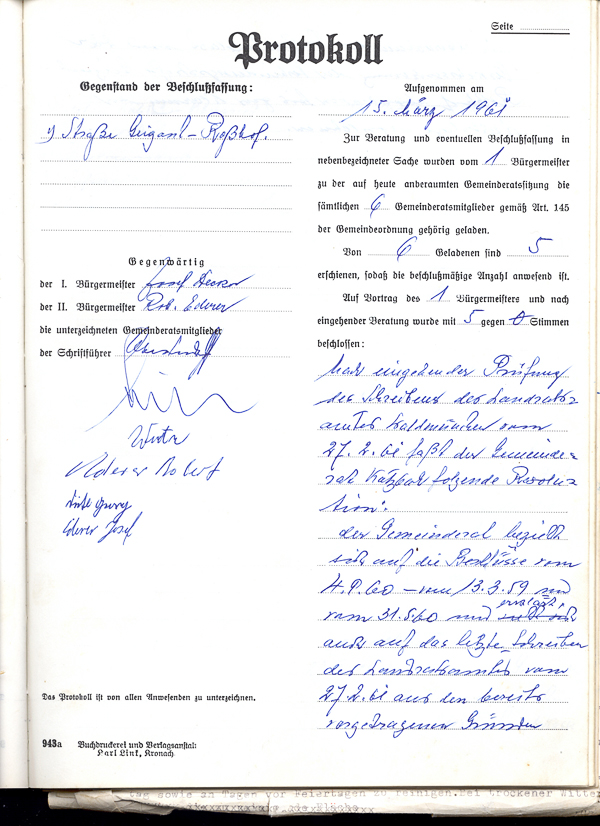 Seite
Protokoll
Gegenstand der Beschlußfassung:
1) Straße Geigant - Roßhof.
Gegenwärtig
der I. Bürgermeister Josef Decker
der II. Bürgermeister Rob. Ederer
die unterzeichneten Gemeinderatsmitglieder
der Schriftführer
Ederer Robert
Georg
Ederer Josef
Das Protokoll ist von allen Anwesenden zu unterzeichnen.
943a Buchdruckerei und Verlagsanstalt
Karl Link, Kronach
Aufgenommen am
15. März 1961
Zur Beratung und eventuellen Beschlußfassung in
nebenbezeichneter Sache wurden vom 1 Bürgermeister
zu der auf heute anberaumten Gemeinderatssitzung die
sämtlichen 6 Gemeinderatsmitglieder gemäß Art. 145
der Gemeindeordnung gehörig geladen.
Von 6 Geladenen sind 5
erschienen, sodaß die beschlußmäßige Anzahl anwesend ist.
Auf Vortrag des 1 Bürgermeisters und nach
eingehender Beratung wurde mit 5 gegen 0 Stimmen
beschlossen:
Nach eingehender Prüfung
des Schreibens des Landrats=
amtes Waldmünchen vom
27.2.61 faßt der Gemeinde=
rat Katzbach folgende Resolu-
tion:
Der Gemeinderat bezieht
sich auf die Beschlüsse vom
4.9.60 - vom 13.3.59 und
vom 31.5.60 und
auch auf das letzte Schreiben
des Landratsamtes vom
27.2.61 aus den bereits
vorgetragenen Gründen
tag sowie an Tagen vor Feiertagen zu reinigen. Bei trockener